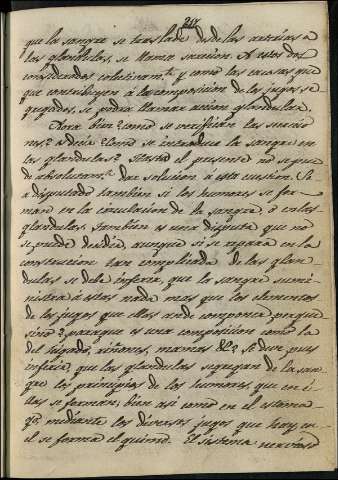 que la sangre se traslade desde las arterias a
las glandulas, se llama succion. A estos dos
considerados colectivam.te y como las causas que
que contribuyen á la composicion de los jugos se-
gregados, se podra llamar accion glandular.
Aora bien? como se verifican las succio
nes? es decir? como se introduce la sangre en
las glandulas? Hasta el presente no se pue
de absolutam.te dar solucion á esta cuestion. Se
a disputado tambien si los humores se for
man en la circulacion de la sangre, o en las
glandulas; tambien es una disputa que no
se puede decidir, aunque si se repara en la
constuccion tan complicada de las glan-
dulas se debe inferir, que la sangre sumi-
nistra á estas nada mas que los elementos
de los jugos que ellas an de componer porque
sino? paraque es una composicion como la
del higado, riñones, mamas &c? se deve pues
inferir, que las glandulas segregan de la san-
gre los principios de los humores, que en é-
llas se forman; bien asi como en el estoma-
go mediante los diversos jugos que hay en
el se forma el quimo. El sistema nervioso